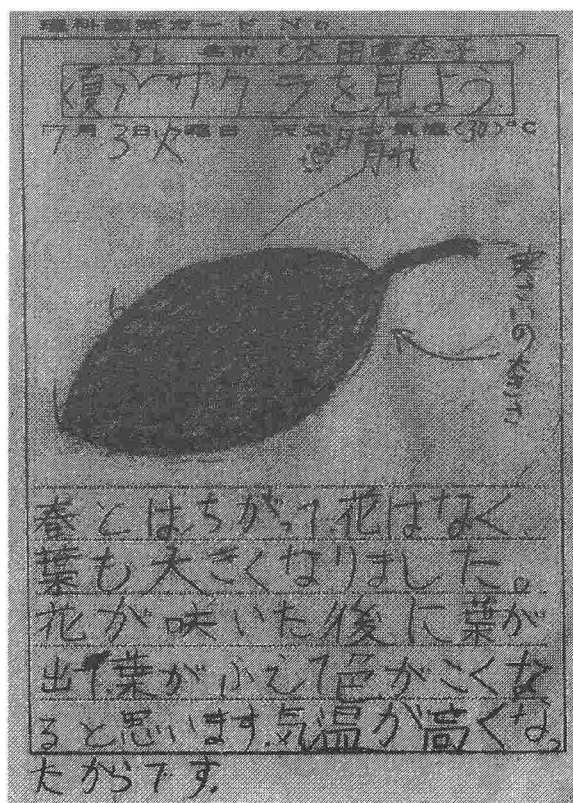 理科観察カード No.
名前（太田
夏のサクラを見よう
7月3日火曜日 天気 晴れ 気温(30)℃
春とはちがって、花はなく、
葉も大きくなりました。
花が咲いた後に葉が
出て、葉がふえて色がこくな
ると思います。気温が高くなっ
たからです。